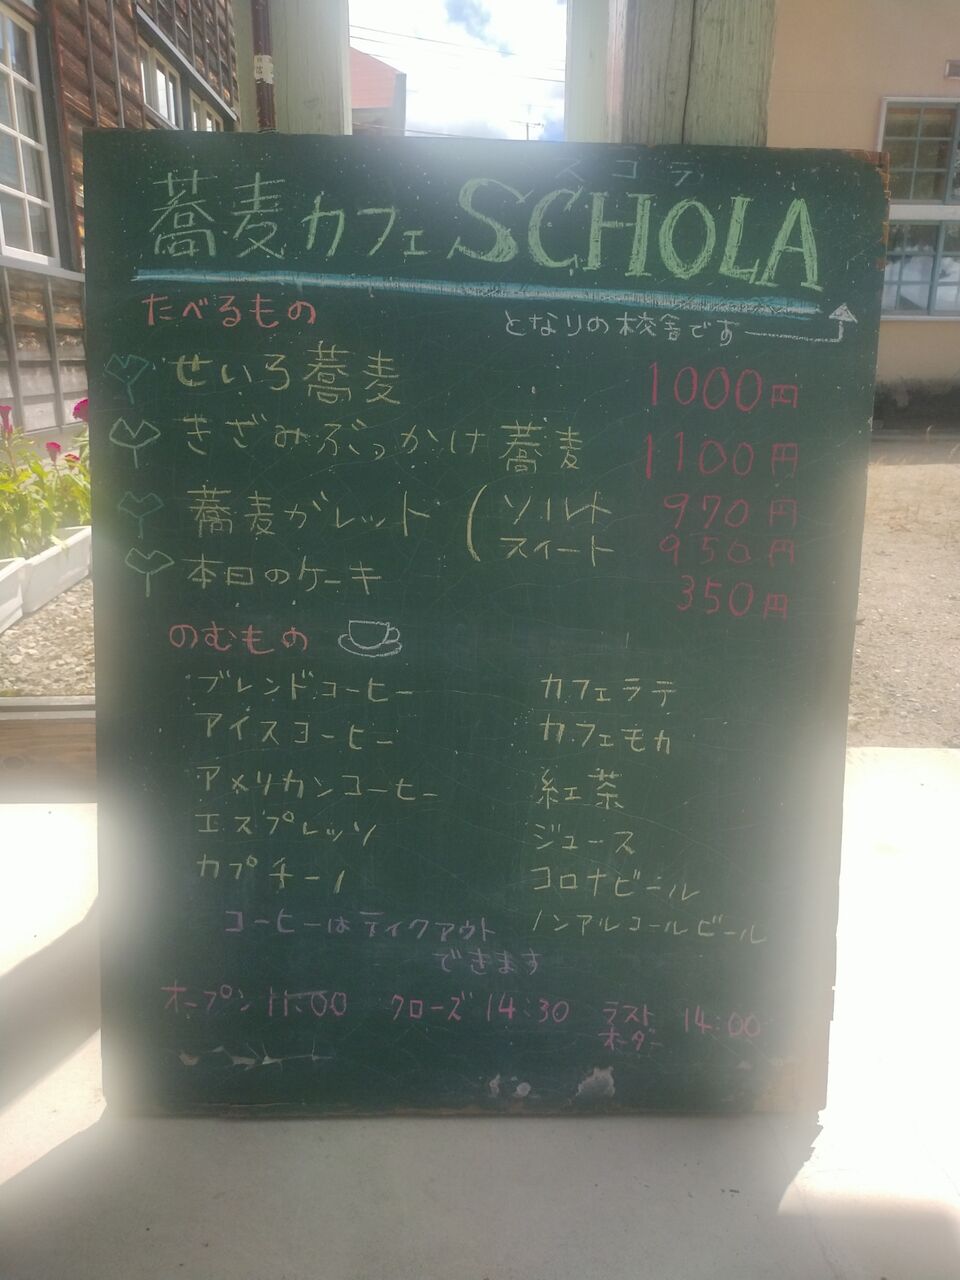 スコラ
蕎麦カフェ SCHOLA
たべるもの
となりの校舎です
せいろ蕎麦 1000円
きざみぶっかけ蕎麦 1100円
蕎麦ガレット (ソルト 970円
スィート 950円
本日のケーキ 350円
のむもの
ブレンドコーヒー カフェラテ
アイスコーヒー カフェモカ
アメリカンコーヒー 紅茶
エスプレッソ ジュース
カプチーノ コロナビール
コーヒーはテイクアウト ノンアルコールビール
できます
オープン 11:00 クローズ 14:30 ラスト 14:00
オーダー